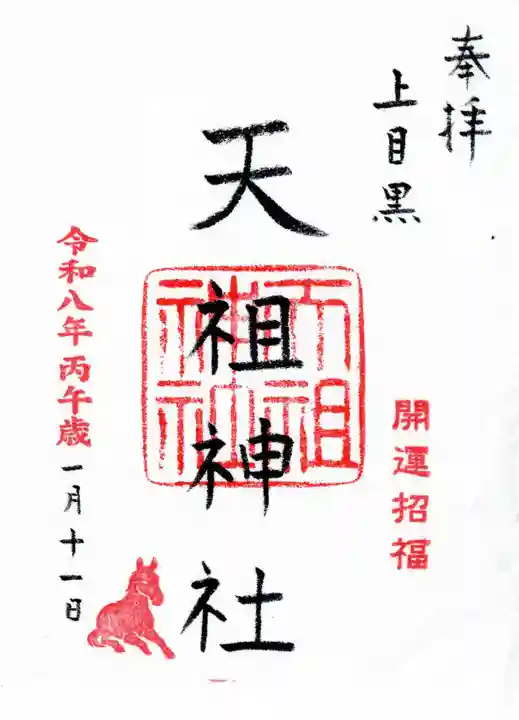 奉拝
上目黒
天祖神社
天祖神社
開運招福
令和八年丙午歳一月十一日